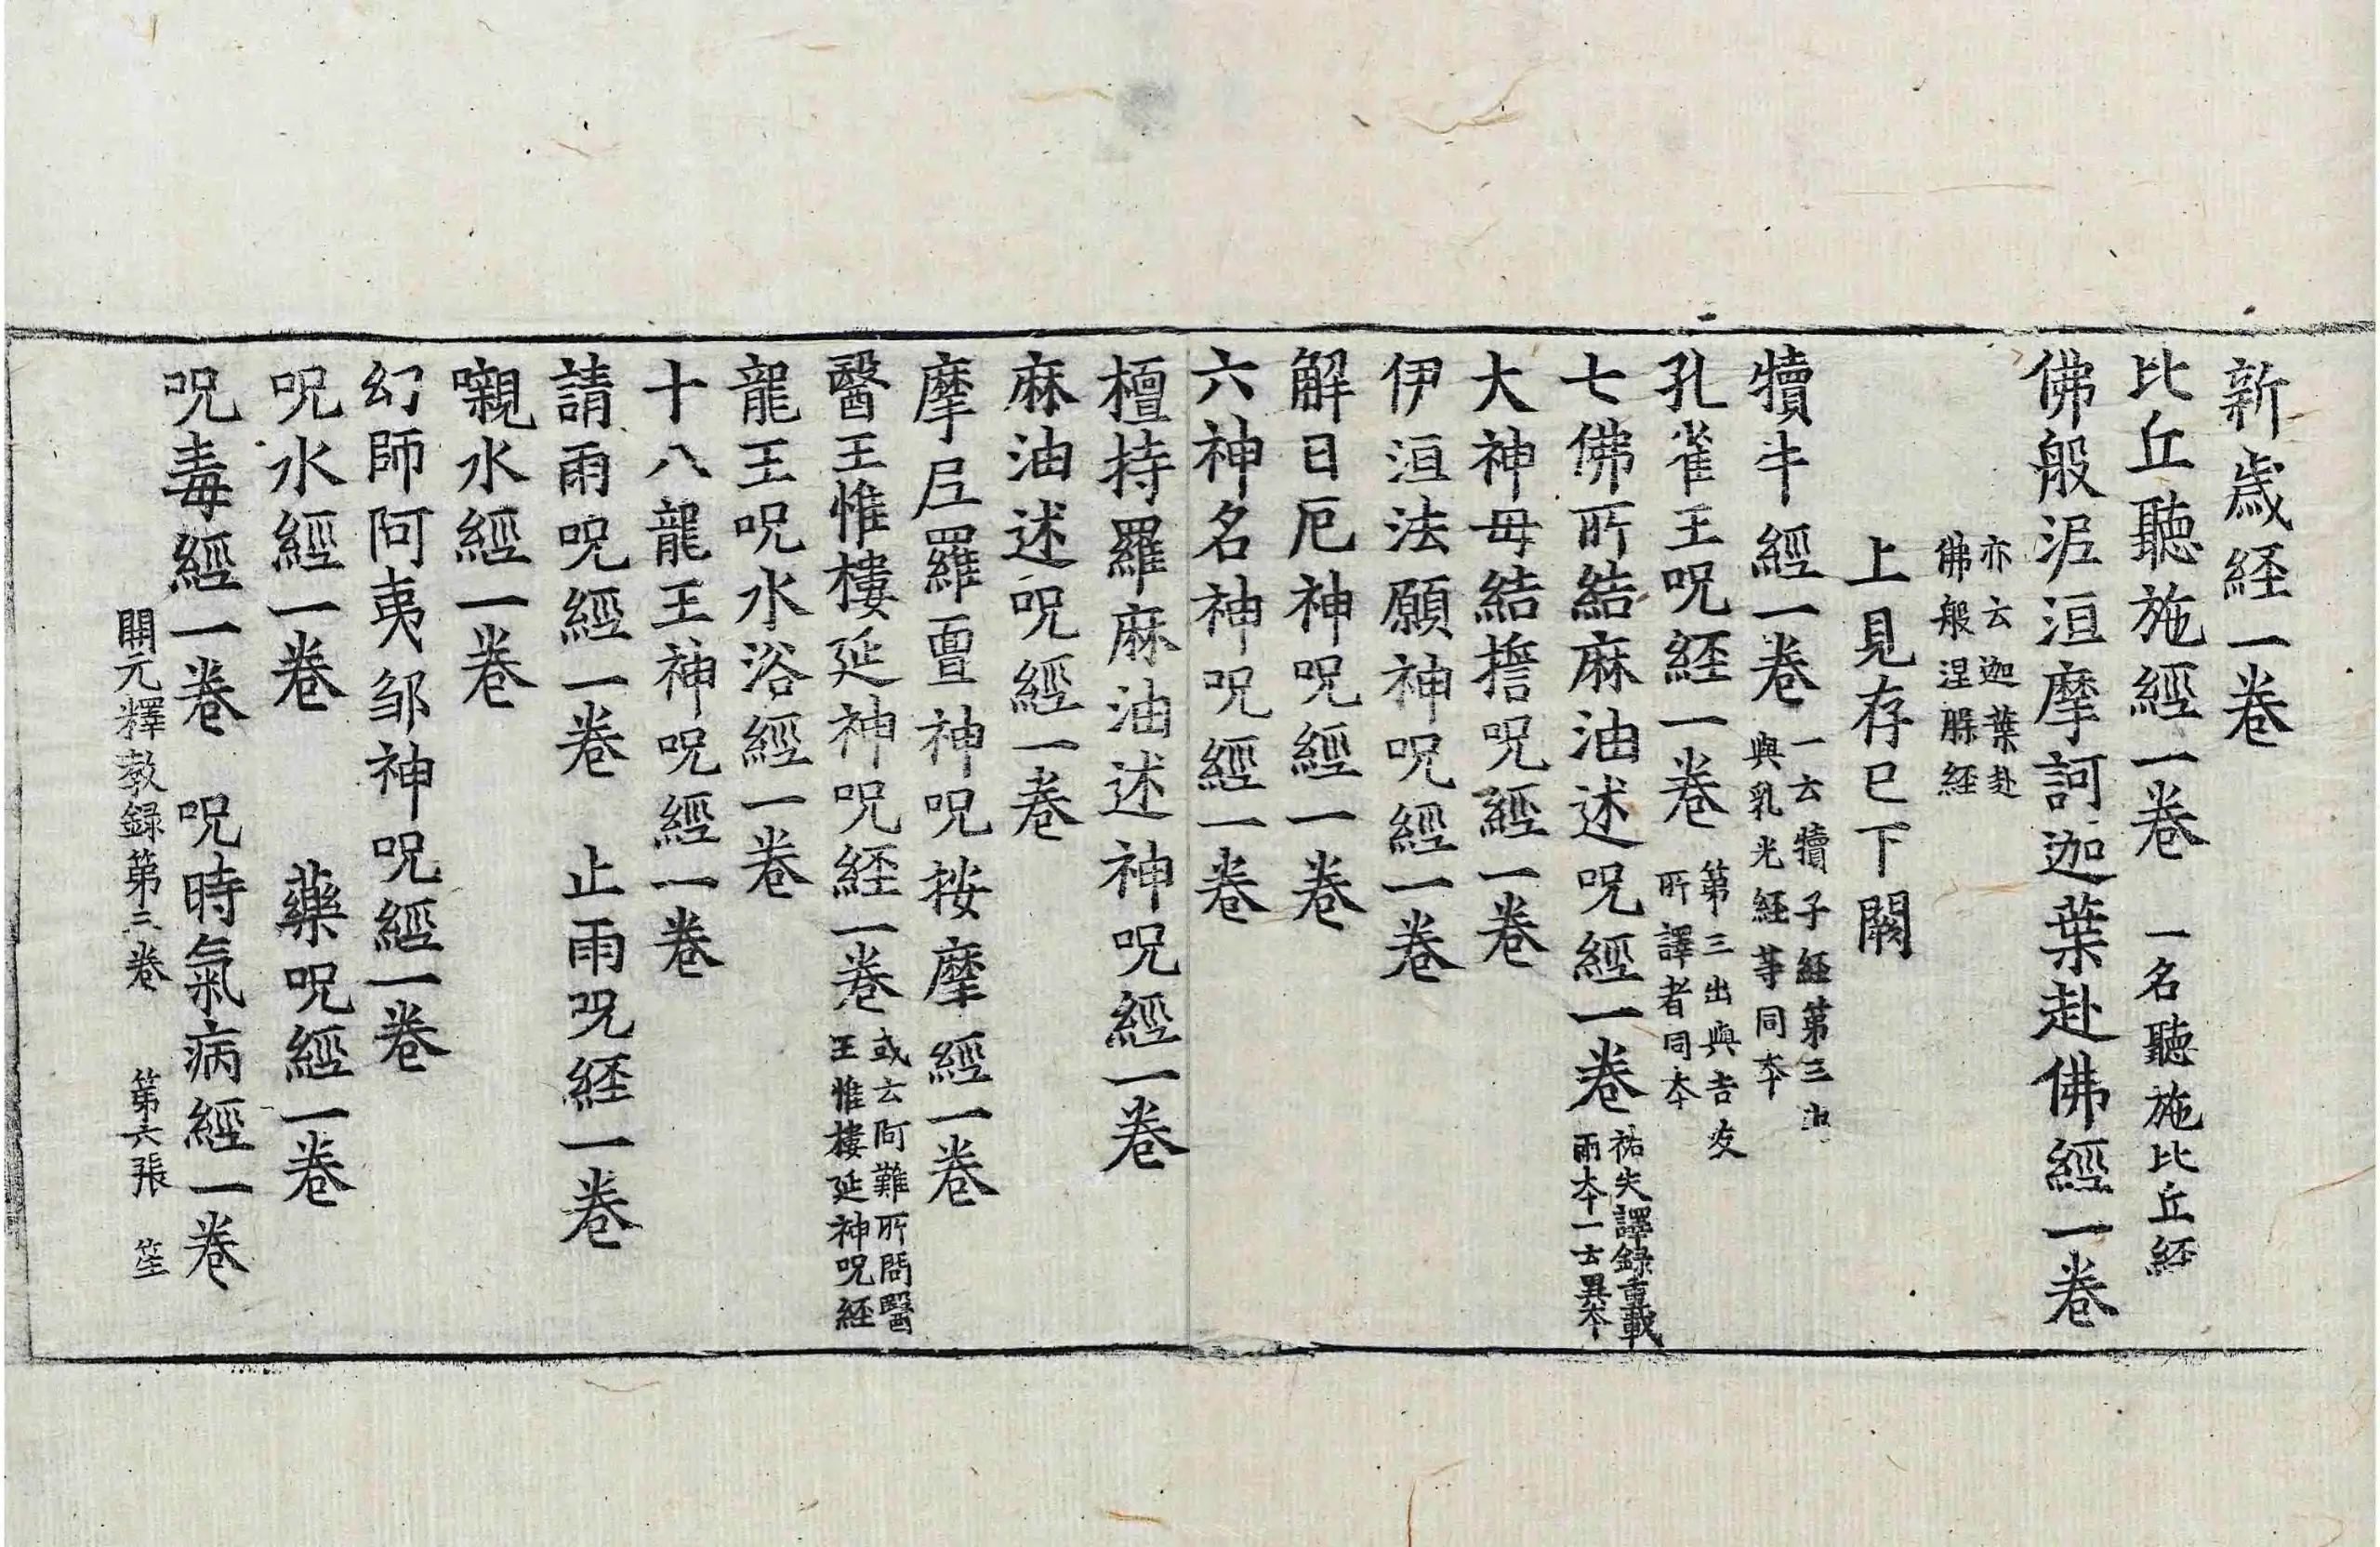 新歲経一卷
比丘聽施經一卷 一名聽施比丘経
佛般泥洹摩訶迦葉赴佛經一卷
亦云迦葉赴
佛般涅槃経
上見存已下闕
犢牛經一卷 一云犢子経第三出
與乳光経等同本
孔雀王呪経一卷 第三出與吉友
所譯者同本
七佛所結麻油述呪經一卷 祐失譯録重載
兩本一云異本
大神母結誓呪經一卷
伊洹法願神呪經一卷
解日厄神呪經一卷
六神名神呪經一卷
檀持羅麻油述神呪經一卷
麻油述呪經一卷
摩尼羅亶神呪按摩經一卷
醫王惟樓延神呪経一卷 或云阿難所問醫
王惟樓延神呪経
龍王呪水浴經一卷
十八龍王神呪經一卷
請雨呪經一卷 止雨呪経一卷
嚫水經一卷
幻師阿夷鄒神呪經一卷
呪水經一卷 藥呪經一卷
呪毒經一卷 呪時氣病經一卷
開元釋教録第三卷 第六張 笙